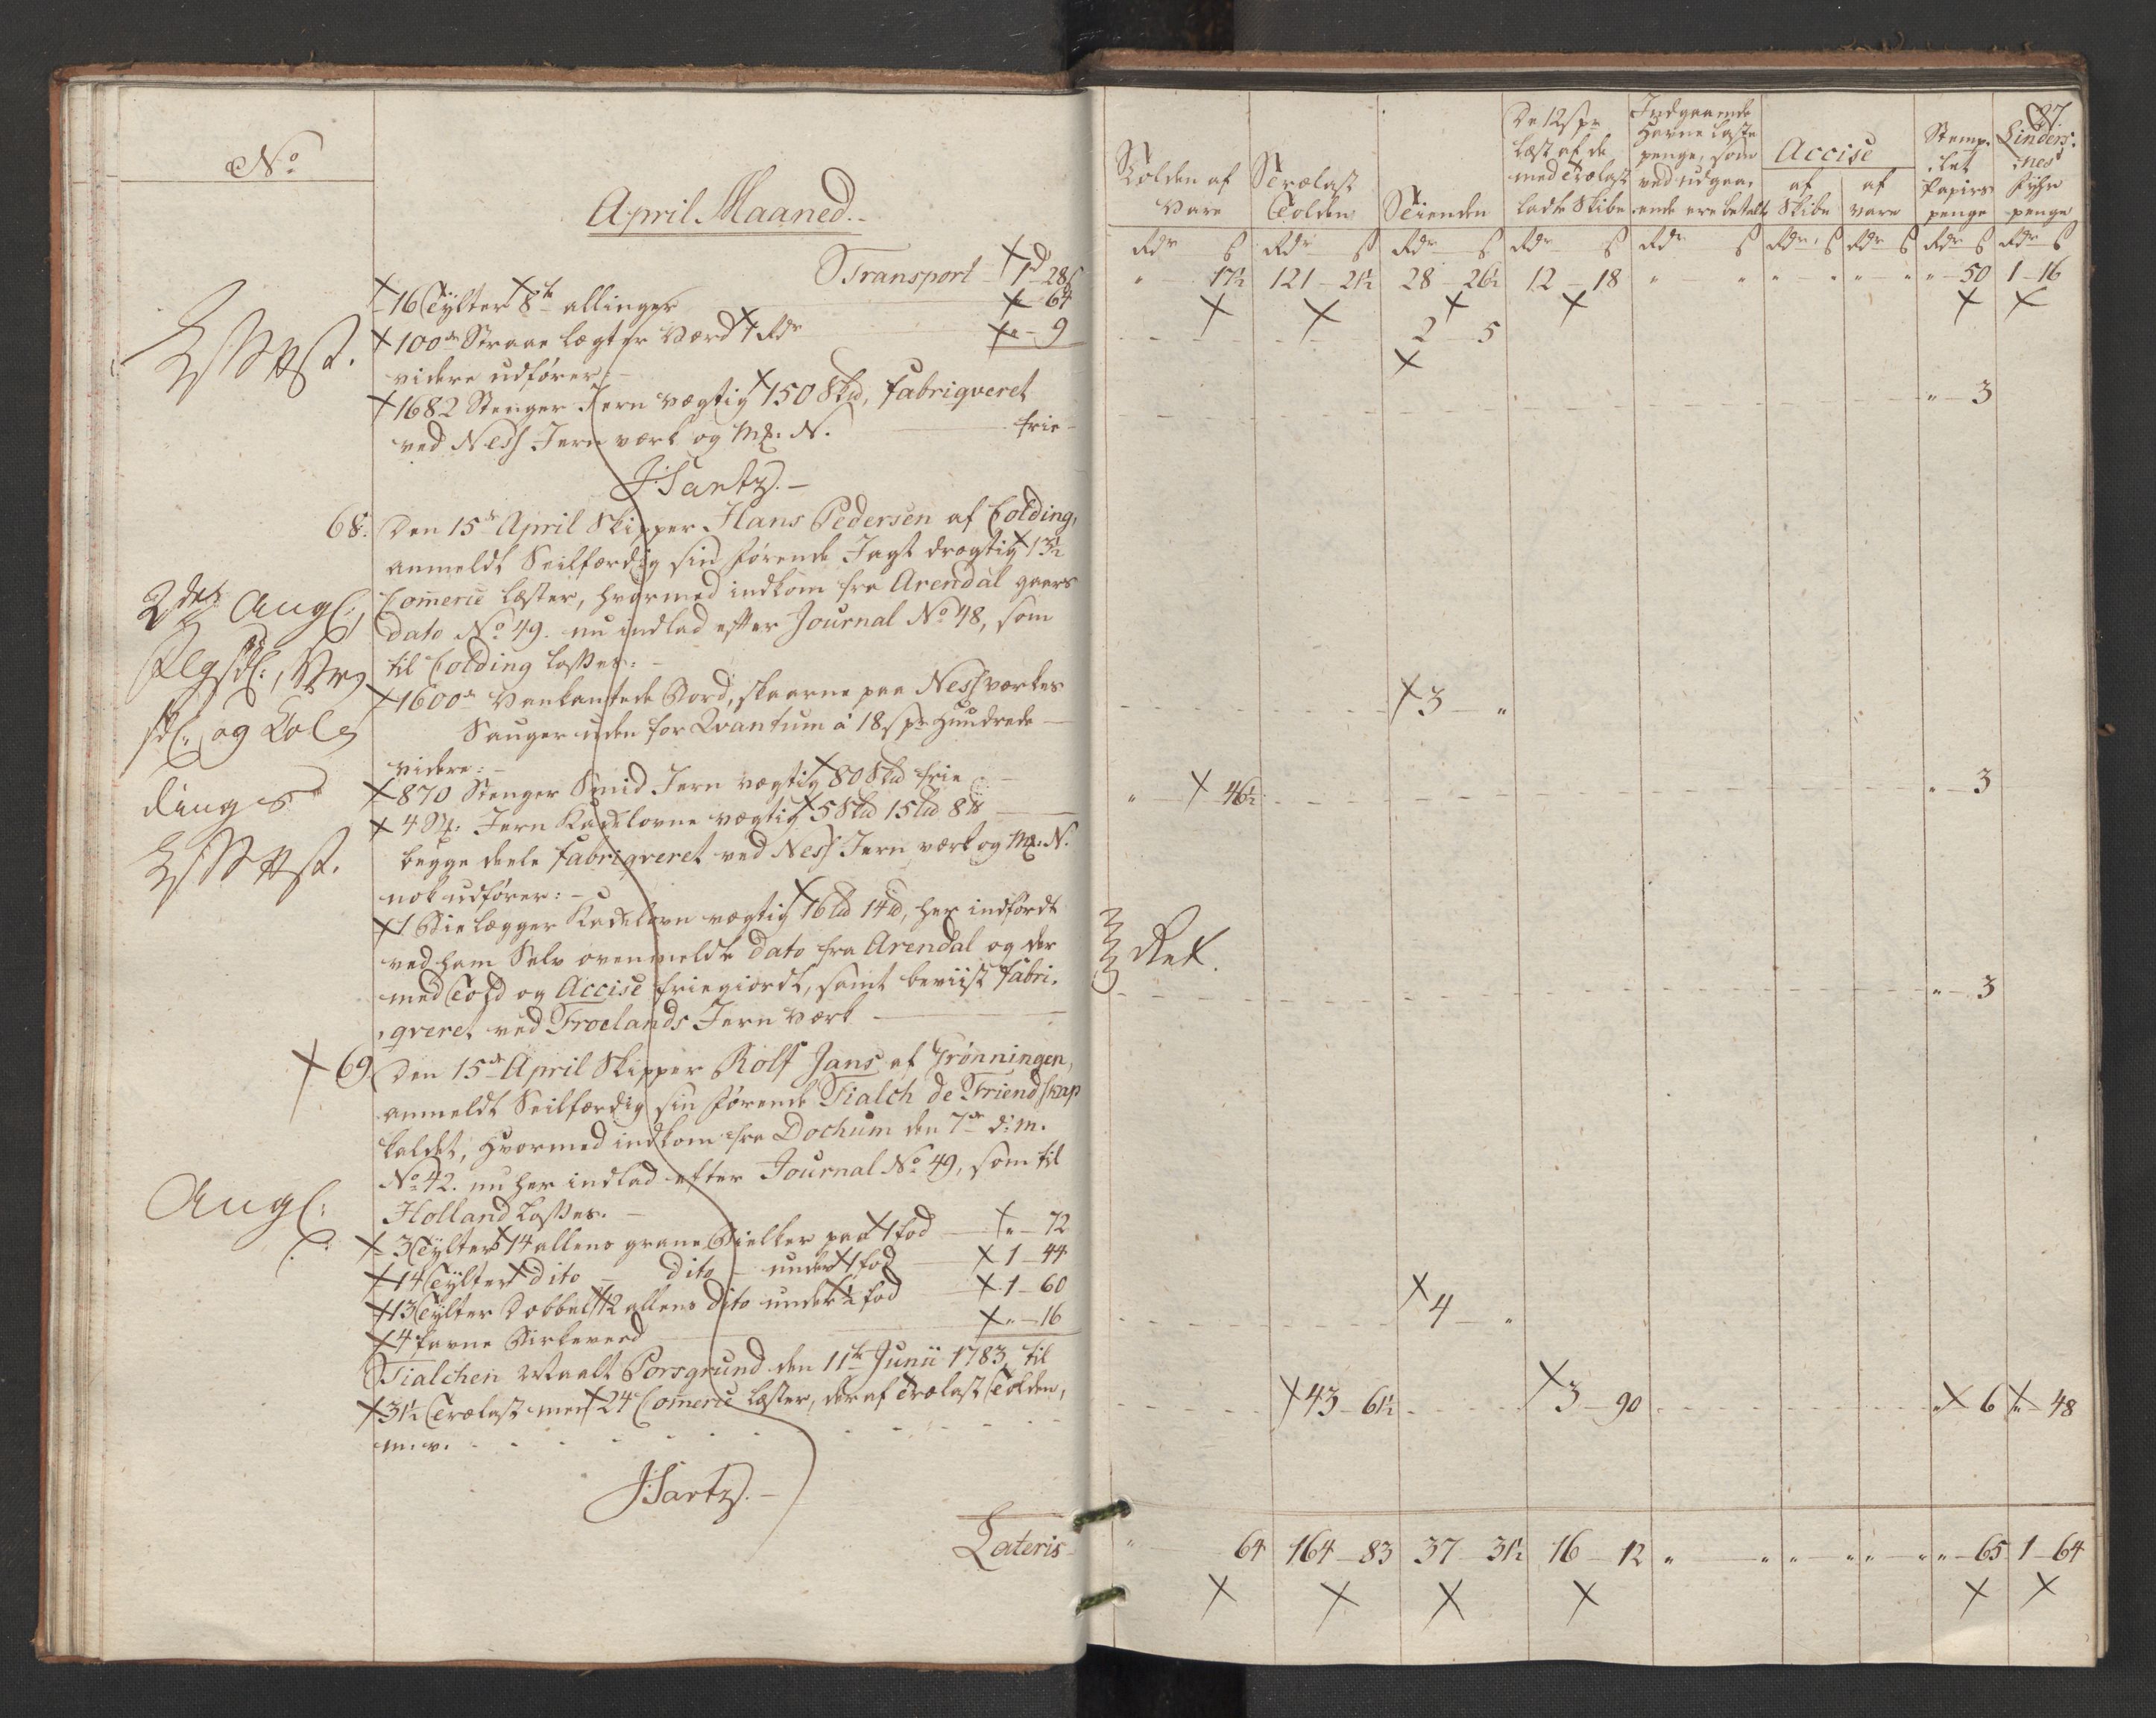 No
April Maaned.
Transport 1d 28s
16 Tylter 8te allinger " 64
100de Straae lægter værd 1 Rdr " 9
videre udfører:
1682 Stenger Jern vægtig 150 Skd, fabriqveret
ved Ness Jern værk og Mk. N. frie
J Sartz.
68. Den 15de April Skipper Hans Pedersen af Colding,
anmeldt Seilfærdig sin førende Jagt drægtig 13½
Comerce læster, hvormed indkom fra Arendal gaars
dato No 49. nu indlad efter Journal No 48, som
til Colding losses:
1600de Vankantede Bord, skaarne paa Ness værkes
Sauger uden for Qvantum á 18s pr Hundrede
videre:
870 Stenger Smid Jern vægtig 80 Skd frie
4 St: Jern Kackelovne vægtig 5 Skd 15 Ld 8 ℔
begge deele fabriqveret ved Ness Jern værk og Mk. N.
nok udfører:
1 Bielægger Kackelovn vægtig 16 Ld 14 ℔, her indført
ved ham Selv ovenmelte dato fra Arendal og der
med Told og Accise friegiordt, samt beviist fabri-
qveret ved Froelands Jern værk
69 Den 15de April Skipper Rolf Jans af Grønningen,
anmeldt Seilfærdig sin førende Tialch de Friendskap
kaldet, hvormed indkom fra Dochum den 7de d: m.
No 42. nu her indlad efter Journal No 49, som til
Holland losses.
3 Tylter 14 allens grane Bielker paa 1 fod " 72
14 Tylter dito dito under 1 fod 1 44
13 Tylter Dobbelt 12 allens dito under ½ fod 1 60
4 favne Birkeveed " 16
Tialchen Maalt Porsgrund den 11te Junii 1783 til
31½ Trælast men 24 Comerce læster, deraf Trælast Tolden,
m. v.
J Sartz.
Lateris
2des Angl:
og Col
dings
Angl:
87.
Tolden af Vare
Trælast Tolden
Tienden
De 12s pr læst af de med Trælast ladte Skibe
Indgaaende Havne laste penge, som ved udgaaende ere betalt
Accise
af Skibe
af vare
Stemplet Papirs penge
Lindersnes fyhr penge
Rdr s Rdr s Rdr s Rdr s Rdr s Rdr s Rdr s Rdr s Rdr s
" 17½ 121 21½ 28 26½ 12 18 " " " " " " " 50 1 16
2 5
" 3
3 "
" 46½ " 3
Ret.
" 3
4 "
43 61½ 3 90 " 6 " 48
" 64 164 83 37 31½ 16 12 " " " " " " " 65 1 64